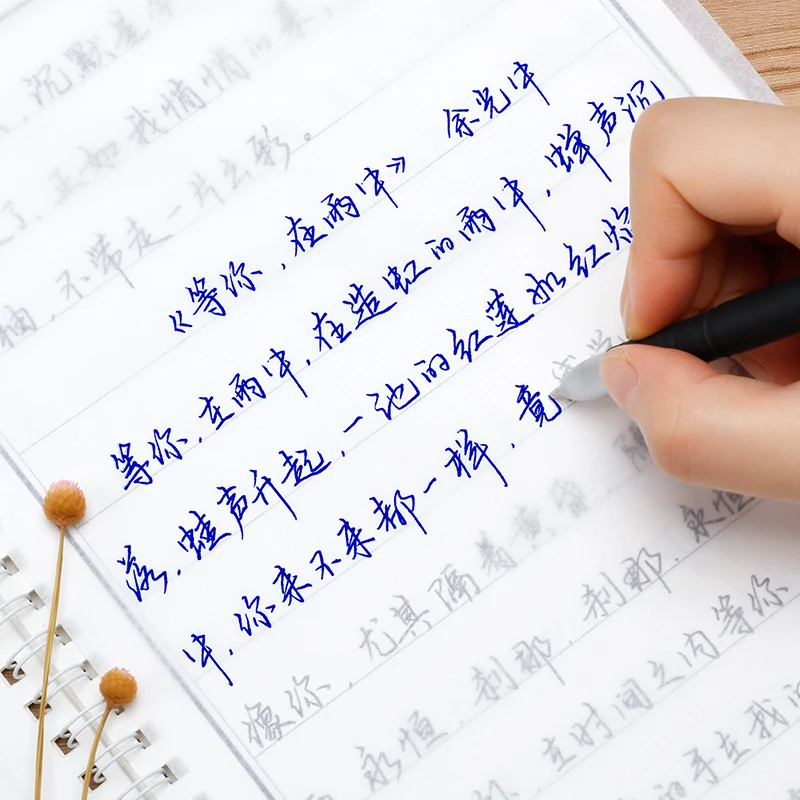 ，沉默是
了，正如我悄悄的来
袖，不带走一片云彩。
《等你，在雨中》 余光中
等你，在雨中，在造虹的雨中，蝉声沉
落，蛙声升起，一池的红莲如红焰
中，你来不来都一样，竟感觉
像你，尤其隔着黄昏，隔
永恒，刹那，刹那，永恒
在时间之内等你
的手在我的